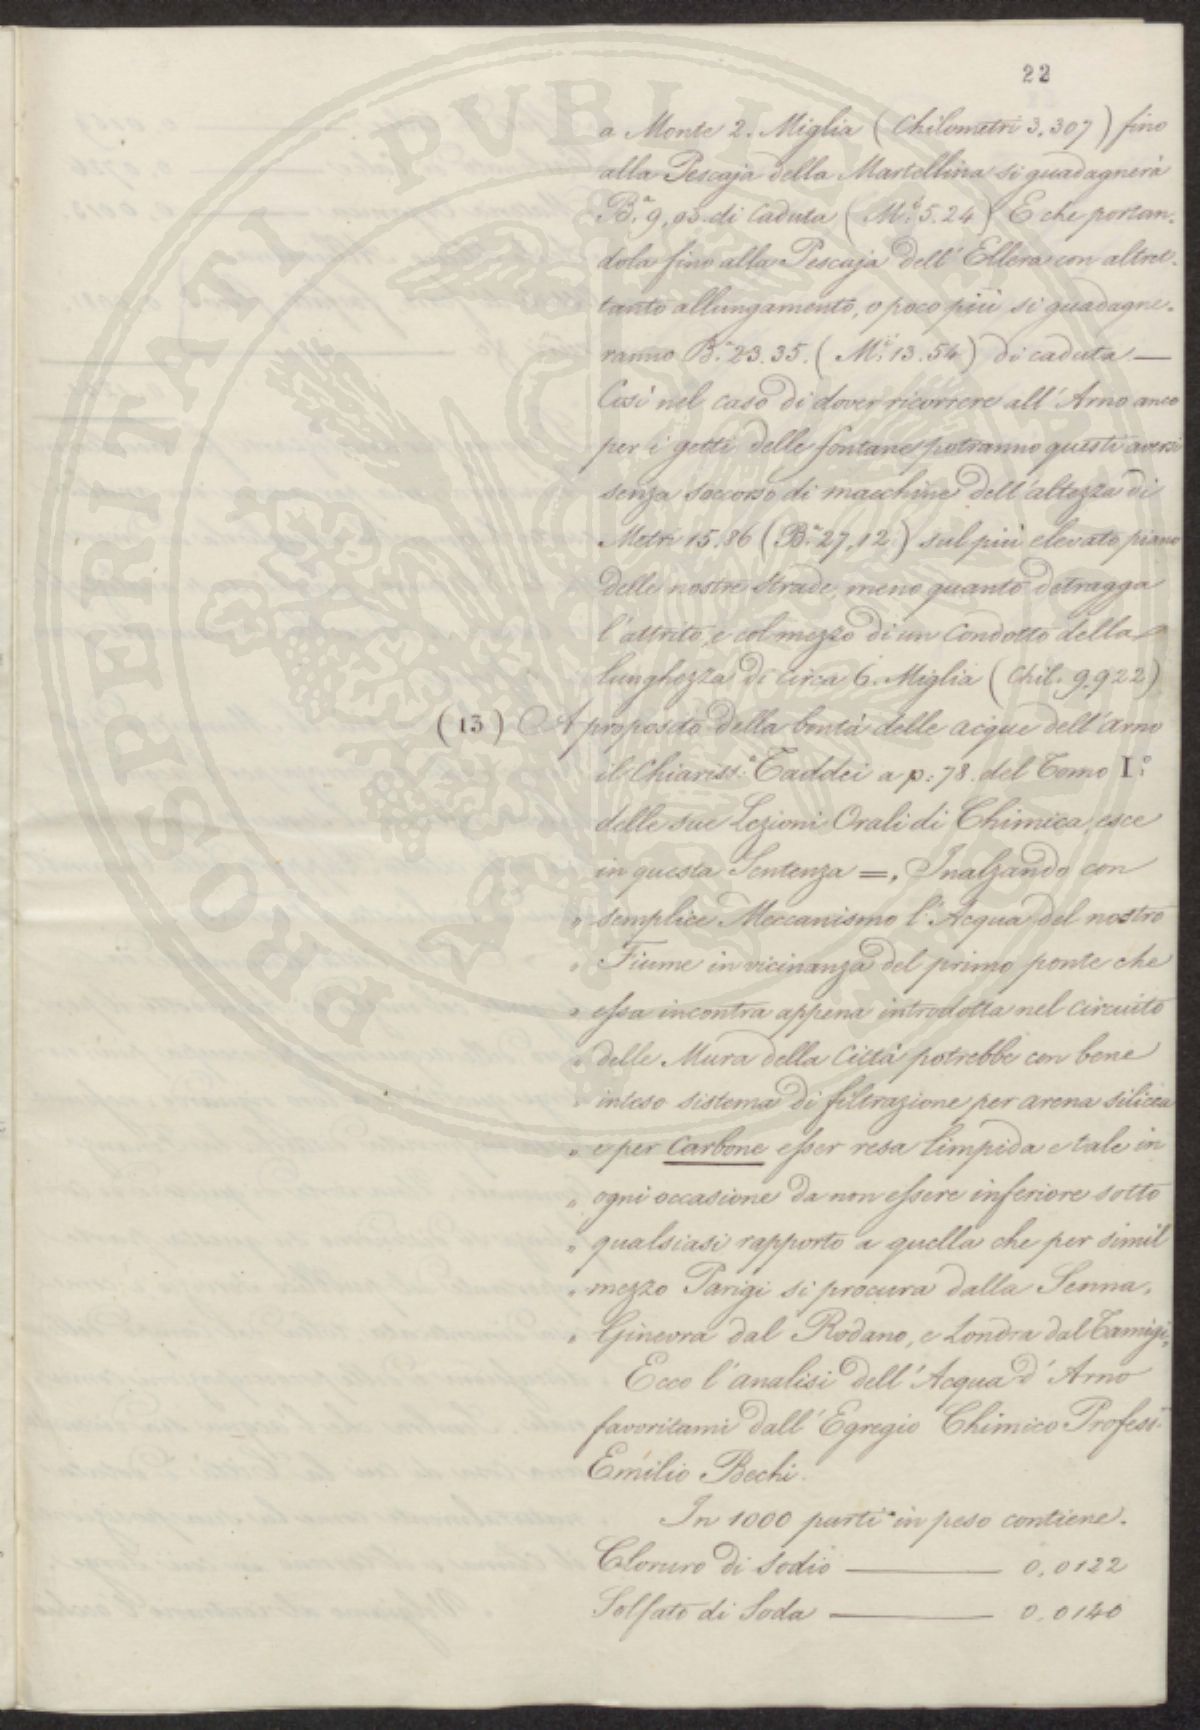 22
a Monte 2. Miglia (Chilometri 3.307) fino
alla Pescaja della Martellina si guadagnerà
B.ª 9,05. di Caduta (M.i 5.24) E che portan-
dola fino alla Pescaja dell'Ellera con altret-
tanto allungamento, o poco più si guadagne-
ranno B.ª 23.35. (M.i 13.54) di caduta —
Così nel caso di dover ricorrere all'Arno anco
per i getti delle fontane potranno questi aversi
senza soccorso di macchine dell'altezza di
Metri 15.86 (B.ª 27,12) sul più elevato piano
delle nostre Strade, meno quanto detragga
l'attrito, e col mezzo di un Condotto della
lunghezza di circa 6. Miglia (Chil. 9,922)
(13) A proposito della bontà delle acque dell'Arno
il Chiariss:º Taddei a p: 78. del Tomo I.º
delle sue Lezioni Orali di Chimica, esce
in questa Sentenza =„ Inalzando con
„ semplice Meccanismo l'Acqua del nostro
„ Fiume in vicinanza del primo ponte che
„ essa incontra appena introdotta nel circuito
„ delle Mura della Città potrebbe con bene
„ inteso sistema di filtrazione per arena silicea
„ e per Carbone esser resa limpida e tale in
„ ogni occasione da non essere inferiore sotto
„ qualsiasi rapporto a quella che per simil
„ mezzo Parigi si procura dalla Senna,
„ Ginevra dal Rodano, e Londra dal Tamigi„
Ecco l'analisi dell'Acqua d'Arno
favoritami dall'Egregio Chimico Profess:
Emilio Bechi.
In 1000 parti in peso contiene.
Cloruro di Sodio — 0,0122
Solfato di Soda — 0,0140
PROSPERITATI PUBLICAE